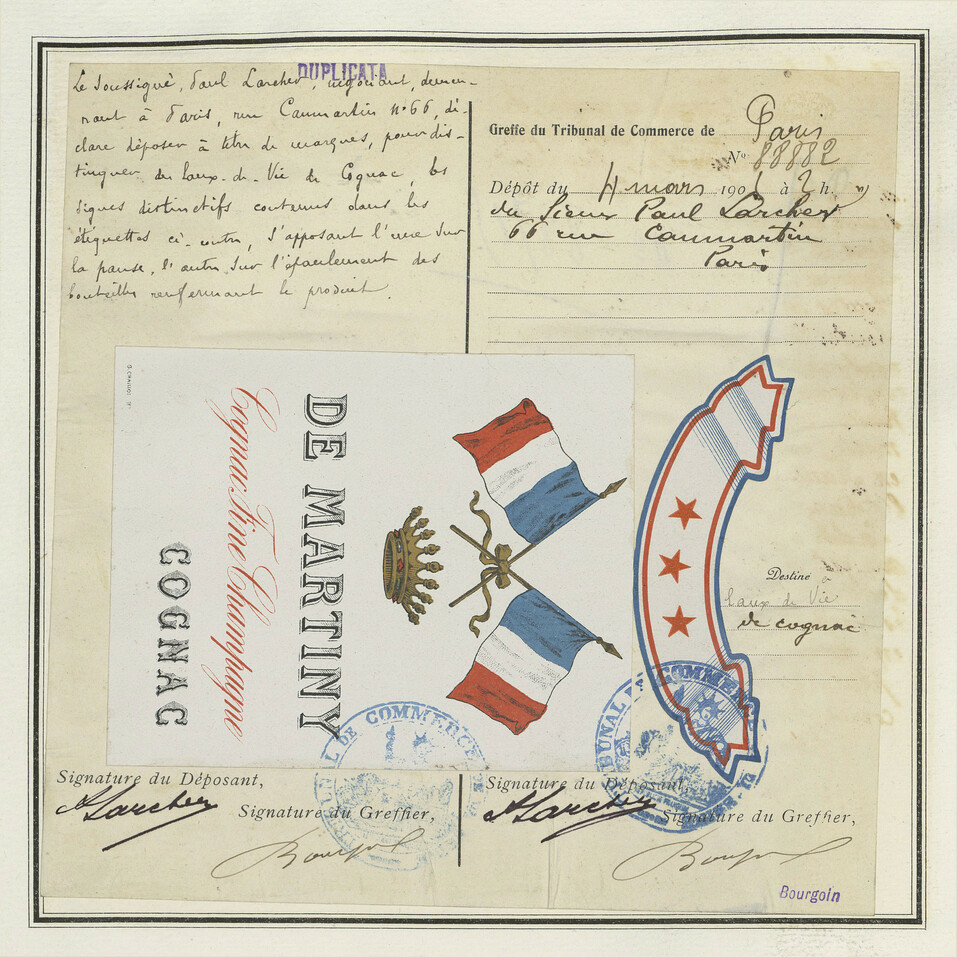 DUPLICATA
Le soussigné, Paul Larcher, négociant, demeu-
rant à Paris, rue Caumartin n° 66, dé-
clare déposer à titre de marques, pour dis-
tinguer des Eaux-de-Vie de Cognac, les
signes distinctifs contenus dans les
étiquettes ci-contre, s'apposant l'une sur
la panse, l'autre sur l'épaulement des
bouteilles renfermant le produit.
Greffe du Tribunal de Commerce de Paris
N° 88882
Dépôt du 4 mars 1901 à 2 h.
du Sieur Paul Larcher
66 rue Caumartin
Paris
DE MARTINY
Cognac Fine Champagne
COGNAC
Destiné à
Eaux de Vie
de cognac
DE COMMERCE
TRIBUNAL DE COMMERCE
Signature du Déposant,
Larcher
Signature du Greffier,
Signature du Déposant,
Larcher
Signature du Greffier,
Bourgoin